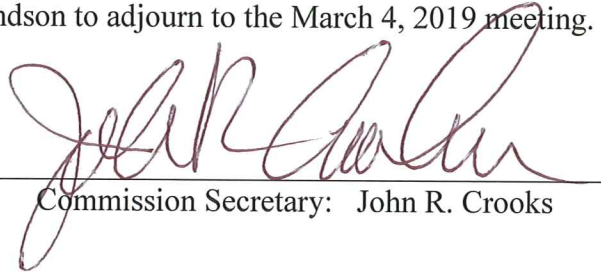 ndson to adjourn to the March 4, 2019 meeting.
John R. Crooks
Commission Secretary: John R. Crooks